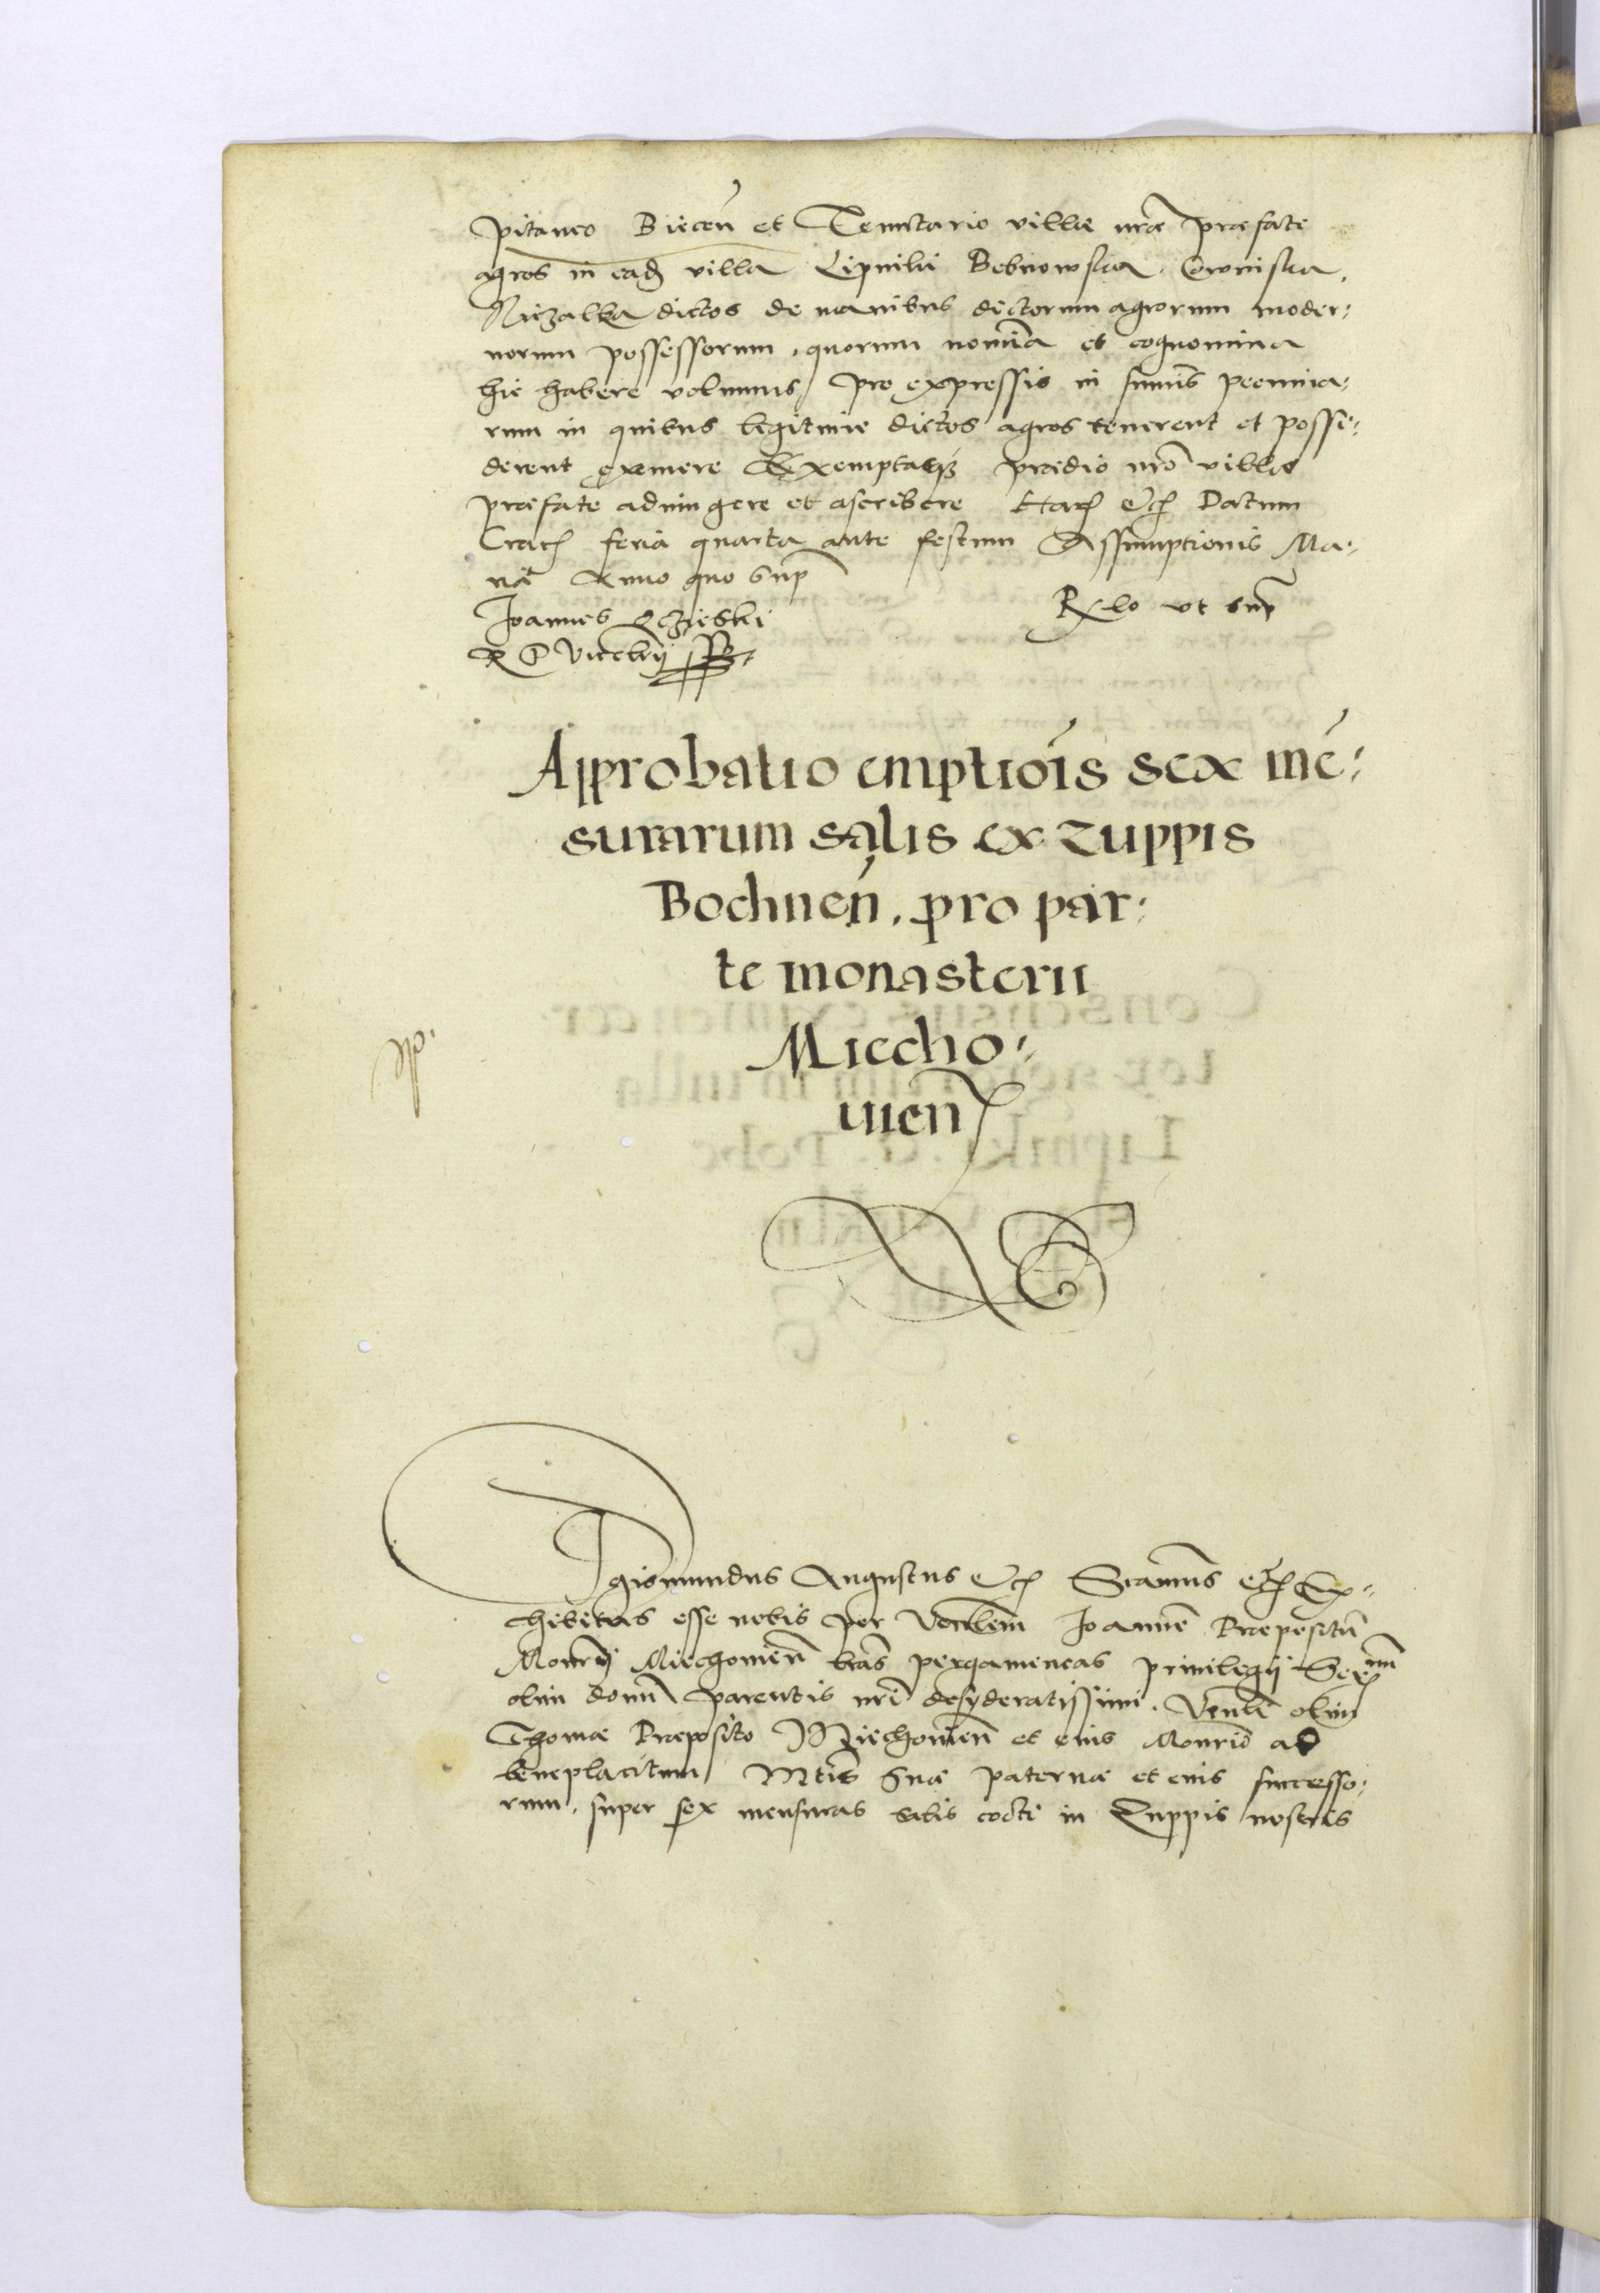 pitaneo Biecen̄ et Tenutario villæ nr̄æ præfatæ
agros in ead villa Lipniki Bobnowska, Cowniska,
Niezalka dictos de manibus dictorum agrorum moder:
norum possessorum, quorum nomīa et cognomina
hic habere volumus pro expressis in summis pecunia:
rum in quibus legitime dictos agros tenerent et posse:
derent eximere Exemptosq; prædio nrō villæ
præfatæ adiungere et ascribere Har etc Datum
Crac feria quarta ante festum Assumptionis Ma:
riæ Anno quo sup
Joannes Oczieski
R P Vicecḷrij
Rlo ut sup
Approbatio emptiōis sex mē:
surarum salis ex zuppis
Bochnen̄, pro par:
te monasterii
Miecho:
uien
de
Sigismundus Augustus etc Sīcamus etc Ex:
hibitas esse nobis per Venlem Joannē Præpositū
Monrij Miechouien̄ lrās pergameneas priuilegij Ser^mi
olim domī parentis nrī desyderatissimi, Venlī olim
Thomæ Præposito Miechouien̄ et eius Monriō ad
beneplacitum Mtis Suæ paternæ et eius successo:
rum, super sex mensuras salis cocti in Zuppis nostris